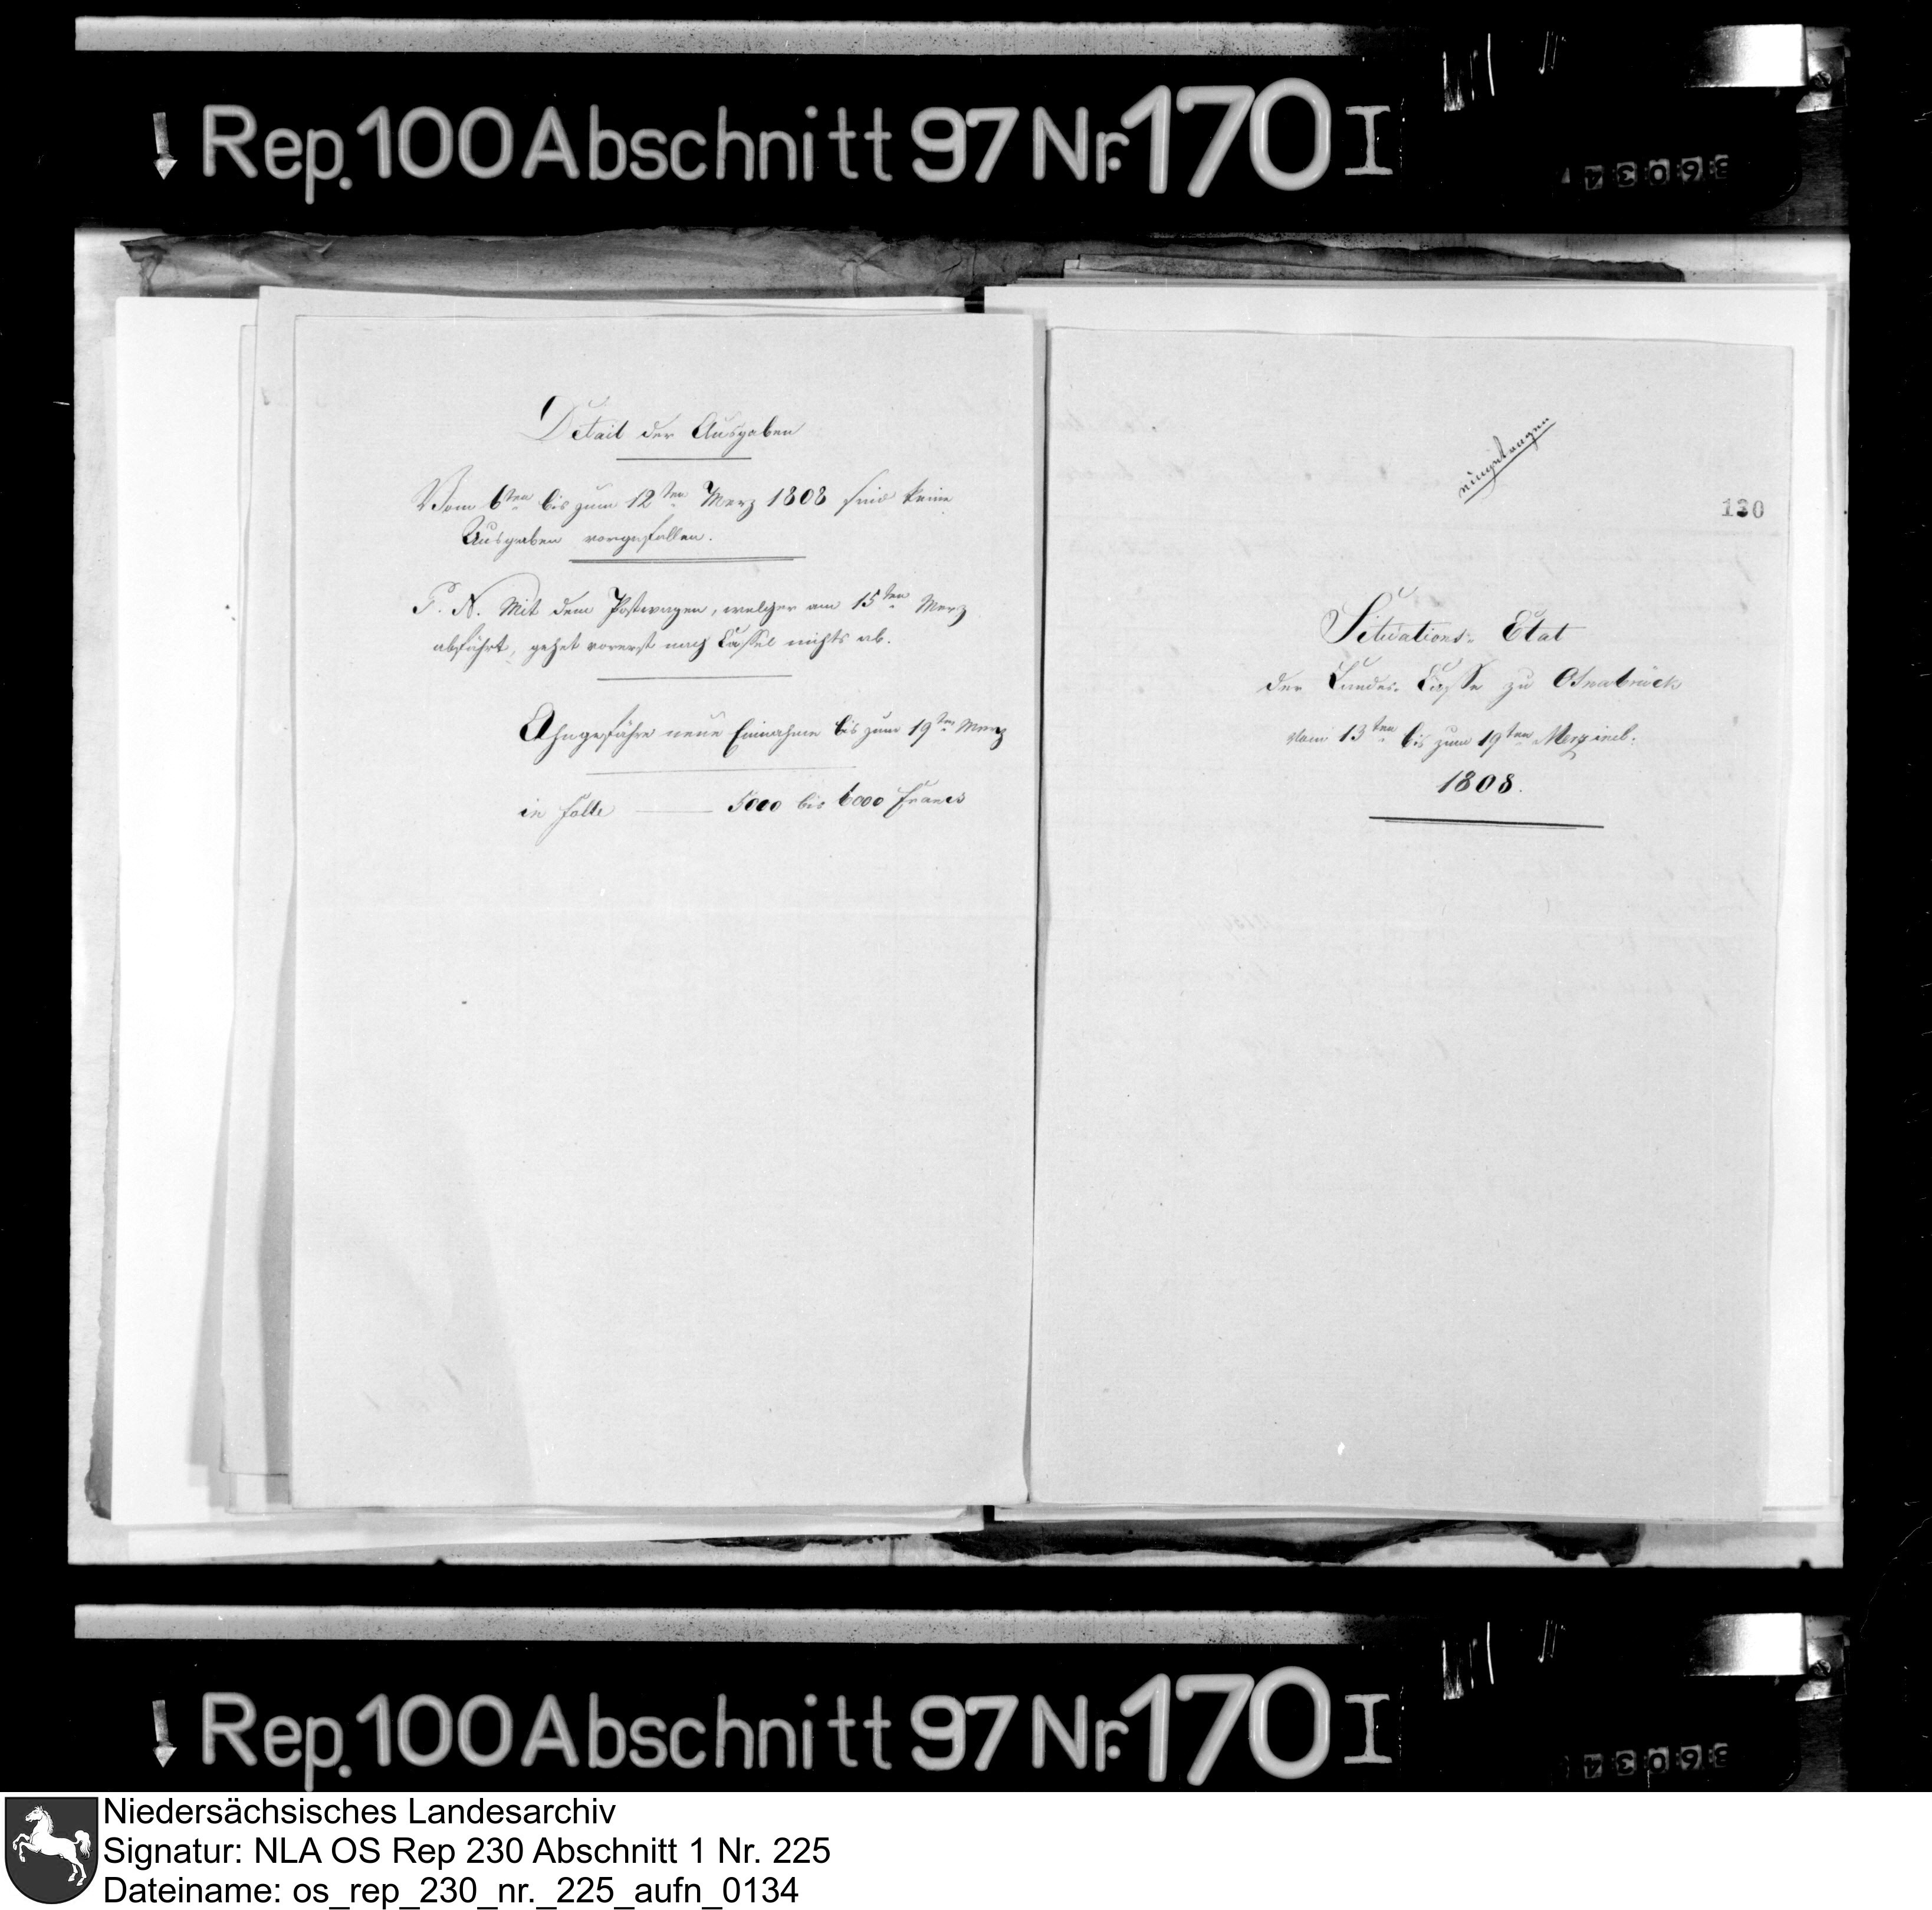 Rep. 100 Abschnitt 97 Nr. 170 I
Detail der Ausgaben
Vom 6ten bis zum 12ten Merz 1808 sind keine
Ausgaben vorgefallen.
P. N. Mit dem Postwagen, welcher am 15ten Merz
abfährt, gehet vorerst nach Cassel nichts ab.
Ahngefähre neue Einnahme bis zum 19ten Merz
in Folle 5000 bis 6000 Francs
130
Situations- Etat
der Landes- Casse zu Osnabrück
vom 13ten bis zum 19ten Merz incl.
1808.
Rep. 100 Abschnitt 97 Nr. 170 I
Niedersächsisches Landesarchiv
Signatur: NLA OS Rep 230 Abschnitt 1 Nr. 225
Dateiname: os_rep_230_nr._225_aufn_0134